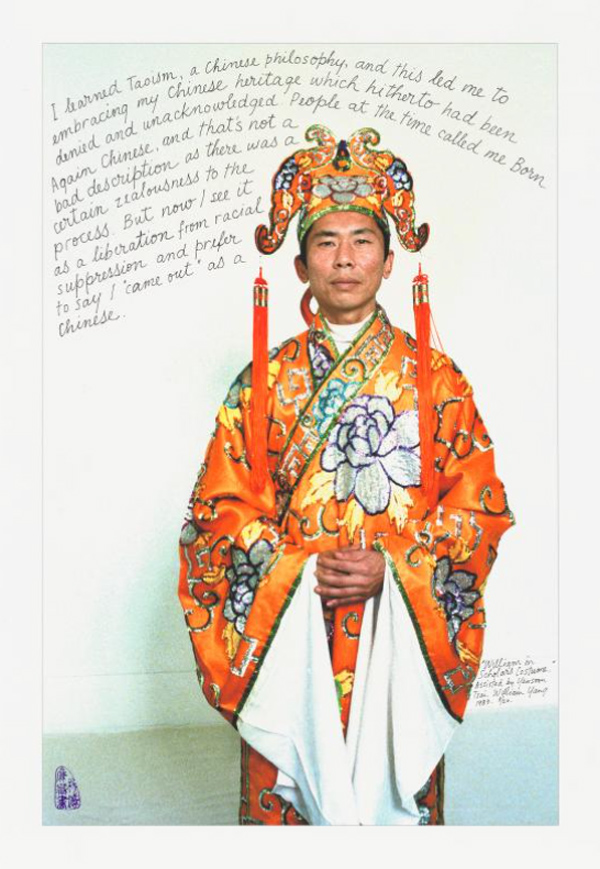 I learned Taoism, a Chinese philosophy, and this led me to
embracing my Chinese heritage which hitherto had been
denied and unacknowledged. People at the time called me Born
Again Chinese, and that's not a
bad description as there was a
certain zealousness to the
process. But now I see it
as a liberation from racial
suppression and prefer
to say I "came out" as a
Chinese.
"William in
Scholars Costume"
assisted by Yensoon
Tsai. William Yang